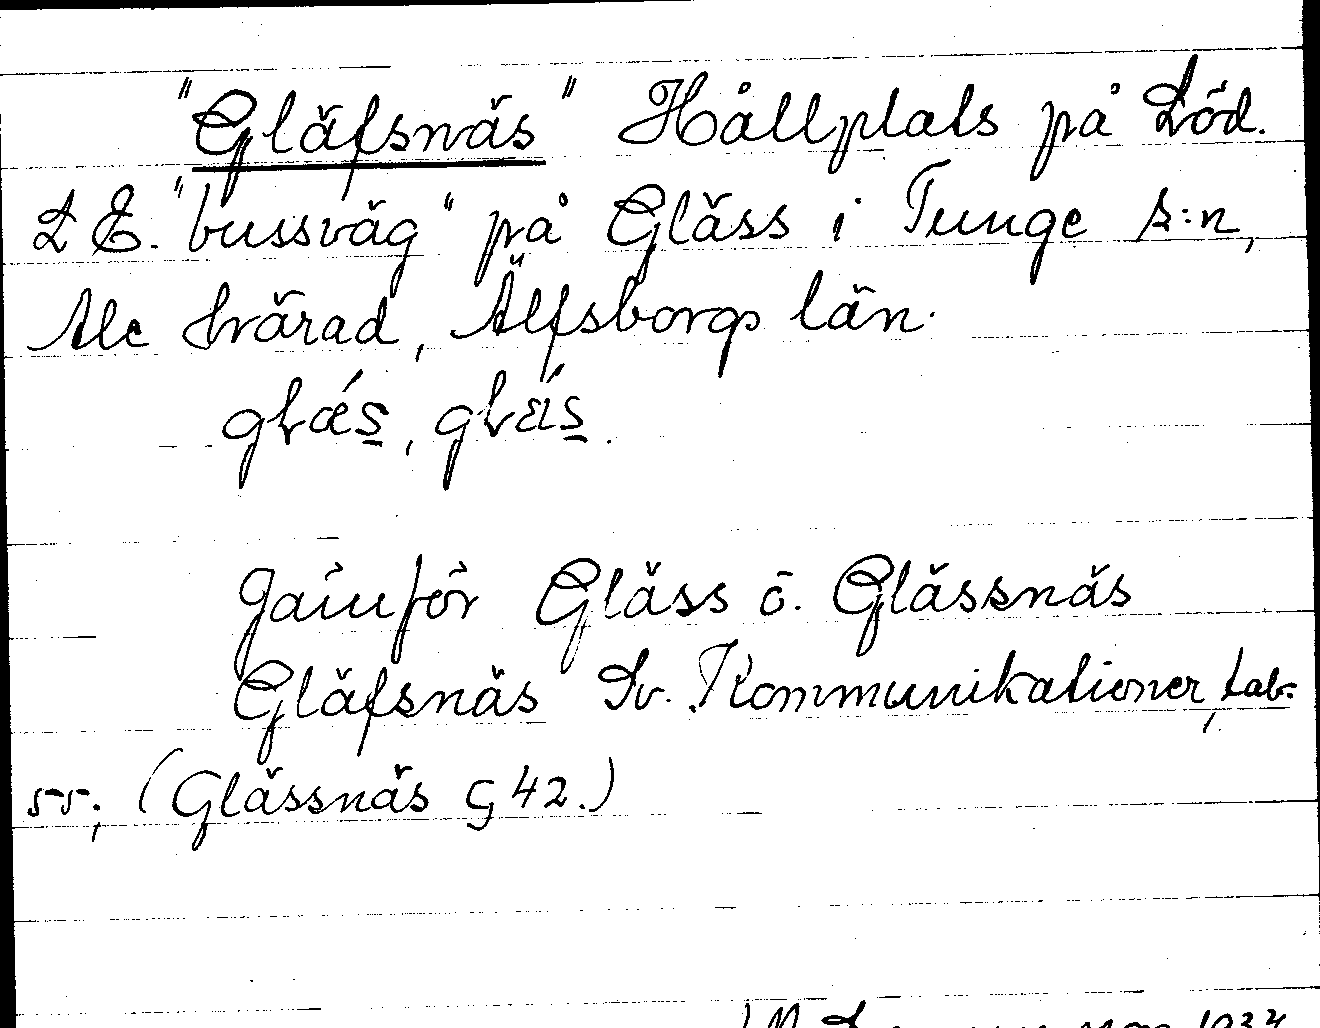 "Gläfsnäs" Hållplats på Löd.
L E. "bussväg" på Gläss i Tunge s:n,
Ale härad, Älfsborgs län.
glǽs, gläs.
Jämför Gläss o. Glässnäs
Gläfsnäs Sv. Kommunikationer, tab.
55; (Glässnäs G 42.)
1934